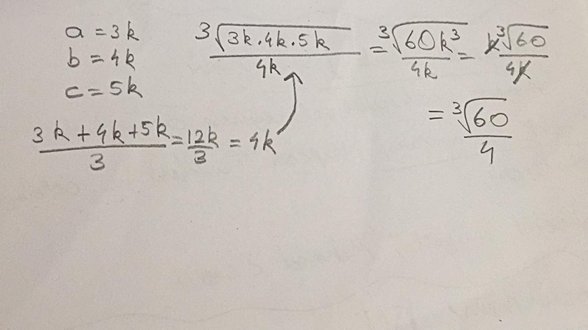 a = 3k
b = 4k
c = 5k
3√3k.4k.5k / 4k = 3√60k³ / 4k = k3√60 / 4k
= 3√60 / 4
3k+4k+5k / 3 = 12k / 3 = 4k